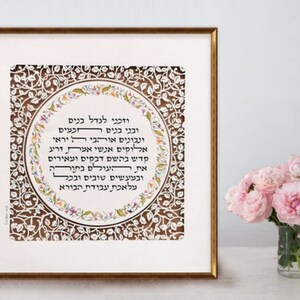 וזכני לגדל בנים
ובני בנים חכמים
ונבונים אוהבי ה' יראי
אלוקים אנשי אמת זרע
קדש בהשם דבקים ומאירים
את העולם בתורה
ובמעשים טובים ובכל
מלאכת עבודת הבורא